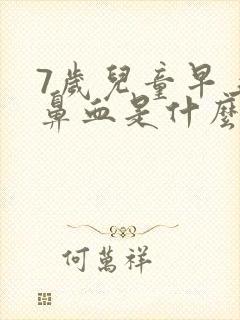 7歲兒童早
鼻血是什麼
何萬祥